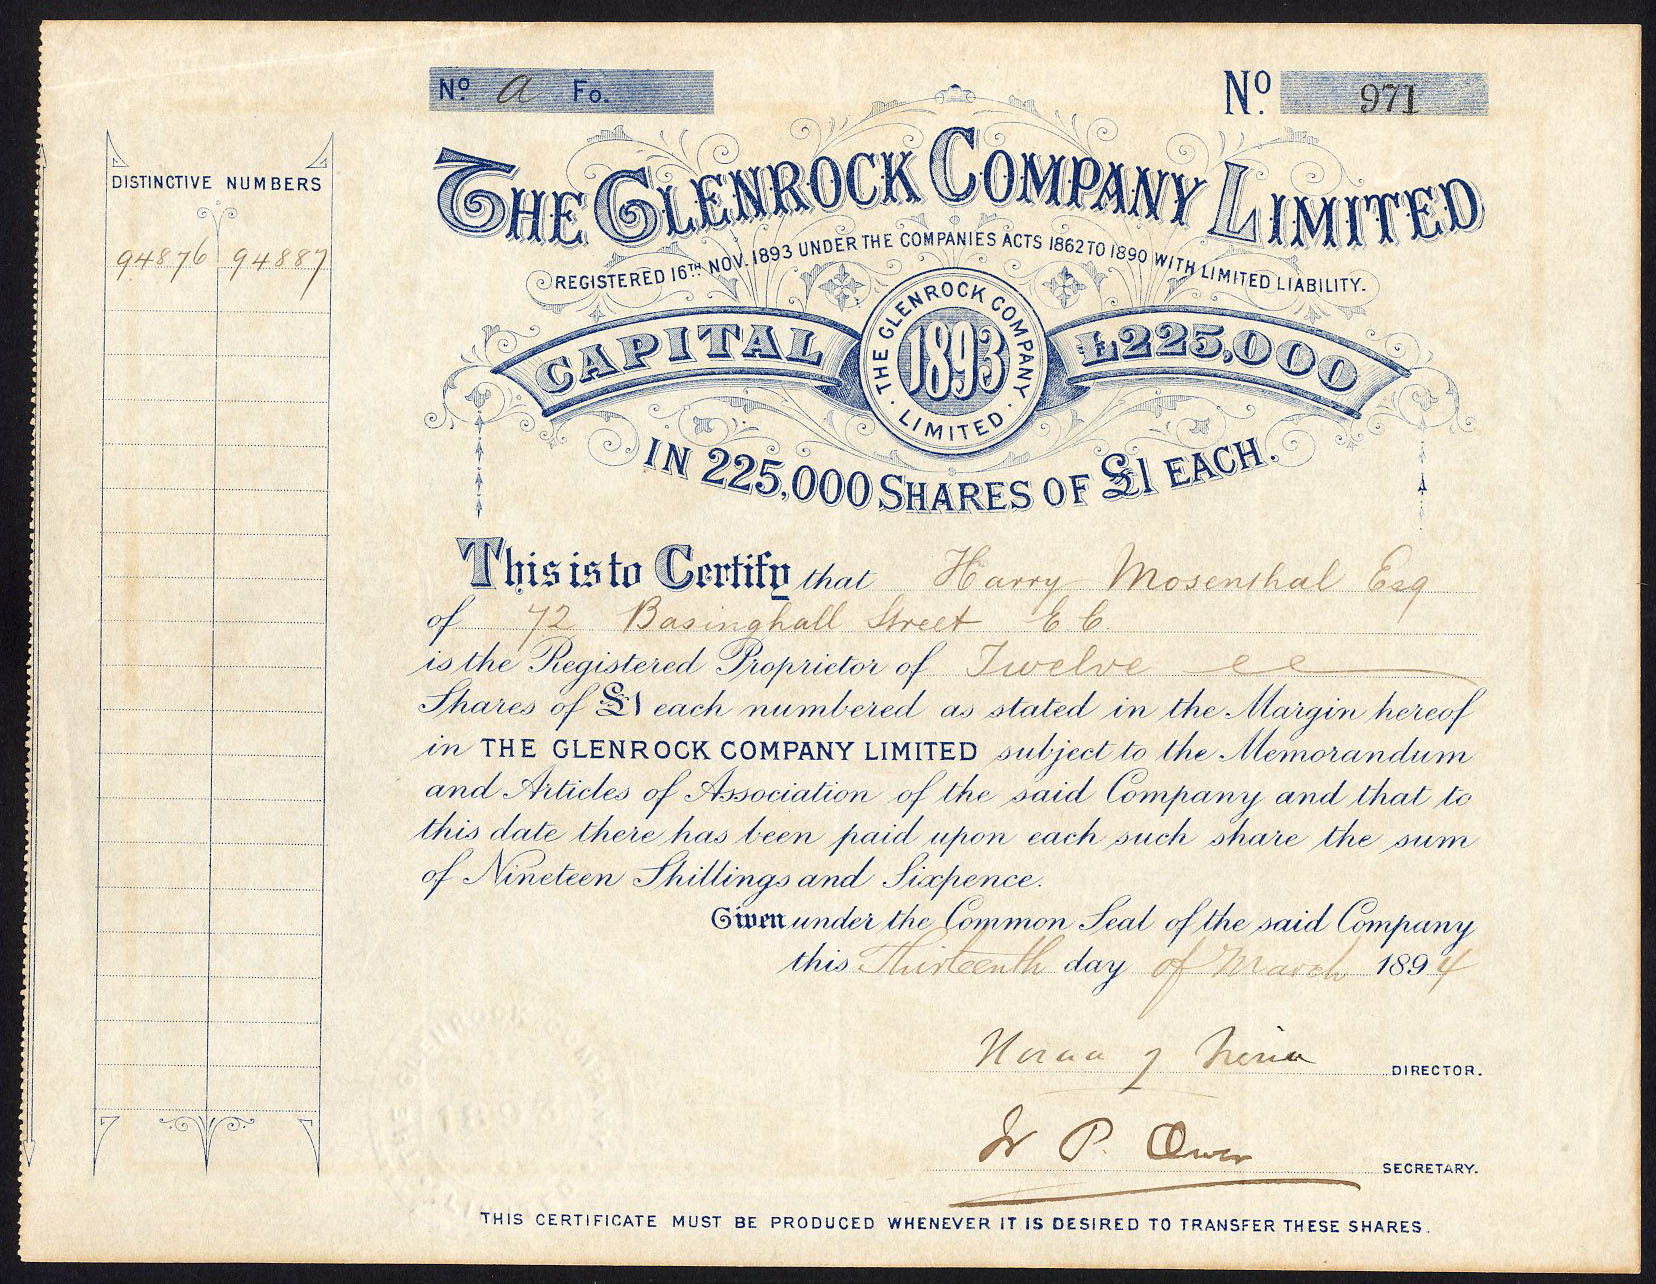 No. a Fo.
No. 971
DISTINCTIVE NUMBERS
94876 94887
THE GLENROCK COMPANY LIMITED
REGISTERED 16TH NOV. 1893 UNDER THE COMPANIES ACTS 1862 TO 1890 WITH LIMITED LIABILITY.
CAPITAL £225,000
THE GLENROCK COMPANY
1893
· LIMITED ·
IN 225,000 SHARES OF £1 EACH.
This is to Certify that Harry Mosenthal Esq
of 72 Basinghall Street E C.
is the Registered Proprietor of Twelve
Shares of £1 each numbered as stated in the Margin hereof
in THE GLENROCK COMPANY LIMITED subject to the Memorandum
and Articles of Association of the said Company and that to
this date there has been paid upon each such share the sum
of Nineteen Shillings and Sixpence.
Given under the Common Seal of the said Company
this Thirteenth day of March 1894
DIRECTOR.
P. Owen
SECRETARY.
THIS CERTIFICATE MUST BE PRODUCED WHENEVER IT IS DESIRED TO TRANSFER THESE SHARES.